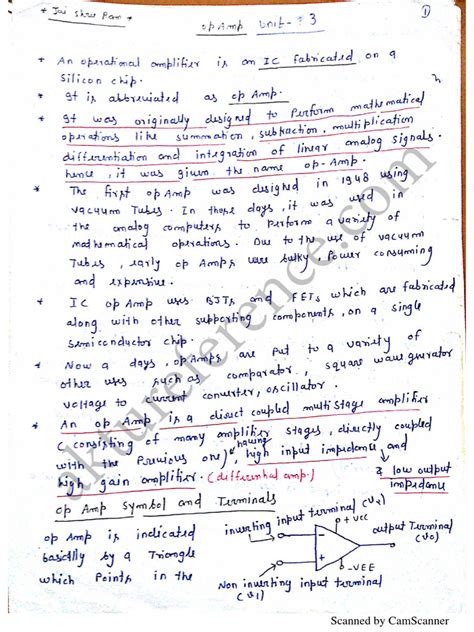 * Jai Shree Ram *
op Amp Unit - 3
1
* An operational amplifier is an IC fabricated on a
Silicon chip.
* It is abbreviated as op Amp.
* It was originally designed to Perform mathematical
operations like summation, subtraction, multiplication
differentiation and integration of linear analog signals.
hence, it was given the name op-Amp.
* The first op Amp was designed in 1948 using
vacuum Tubes. In those days, it was used in
the analog computers to Perform a variety of
mathematical operations. Due to the use of vacuum
Tubes, early op Amps were bulky, Power consuming
and expensive.
* IC op Amp uses BJTs and FETs which are fabricated
along with other supporting components, on a single
Semiconductor chip.
* Now a days, op Amps are Put to a variety of
other uses such as comparator, square wave generator
voltage to current converter, oscillator.
* An op Amp is a direct coupled multistage amplifier
(consisting of many amplifier stages, directly coupled
with the Previous one), having high input impedance and
high gain amplifier. (differential amp.)
& low output
impedance
op Amp Symbol and Terminals
op Amp is indicated
basically by a Triangle
which Points in the
inverting input terminal (V2)
+VCC
output Terminal
(V0)
-VEE
Non inverting input terminal
(V1)
aktureference.com
Scanned by CamScanner